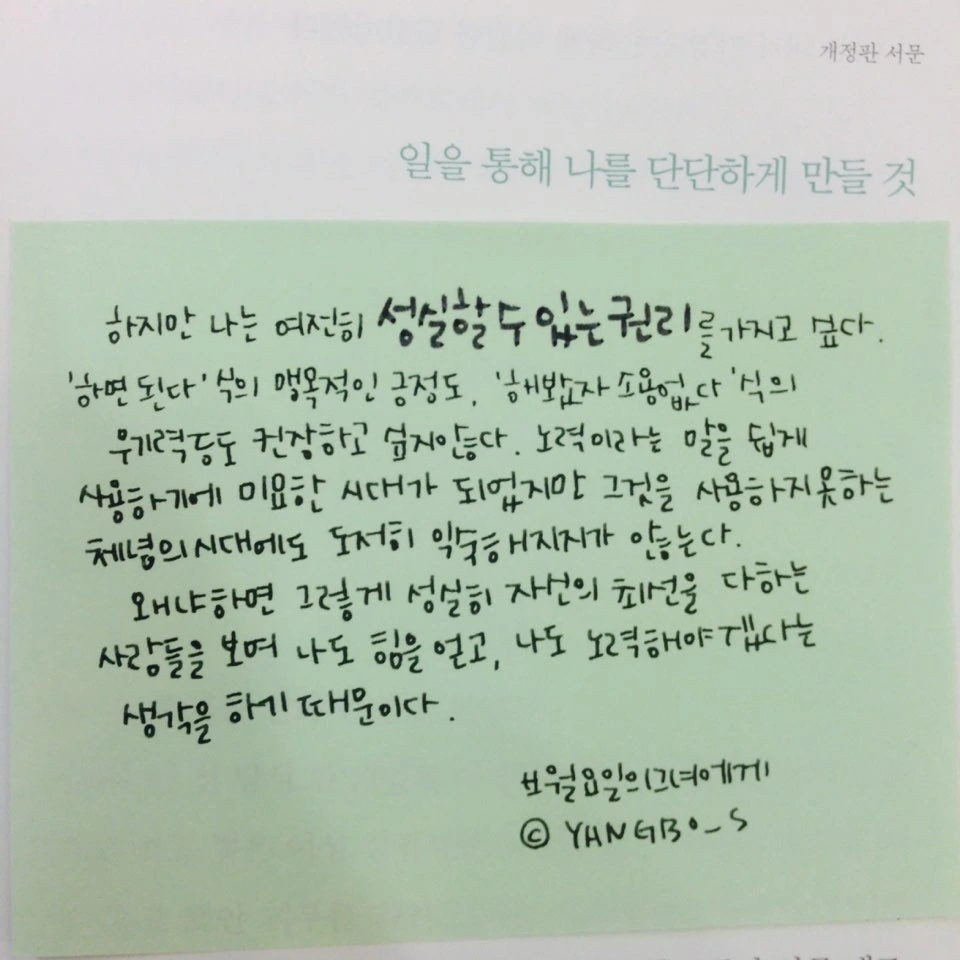 개정판 서문
일을 통해 나를 단단하게 만들 것
하지만 나는 여전히 성실할 수 있는 권리를 가지고 싶다.
'하면 된다' 식의 맹목적인 긍정도, '해봤자 소용없다' 식의
무기력증도 권장하고 싶지않다. 노력이라는 말을 쉽게
사용하기에 미묘한 시대가 되었지만 그것을 사용하지 못하는
체념의 시대에도 도저히 익숙해지지가 않는다.
왜냐하면 그렇게 성실히 자신의 최선을 다하는
사람들을 보며 나도 힘을 얻고, 나도 노력해야겠다는
생각을 하기 때문이다.
#월요일의그녀에게
© YANGBO_S